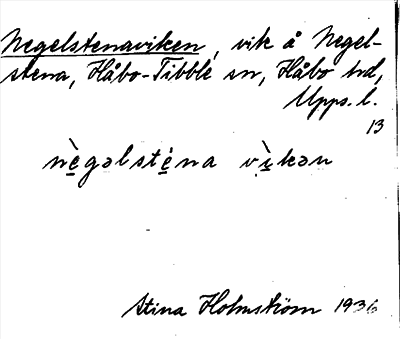 Negelstenaviken, vik å Negel-
stena, Håbo-Tibble sn, Håbo hd,
Upps. l.
13
nè̱gəlsté̱na vì̱kən
Stina Holmström 1936